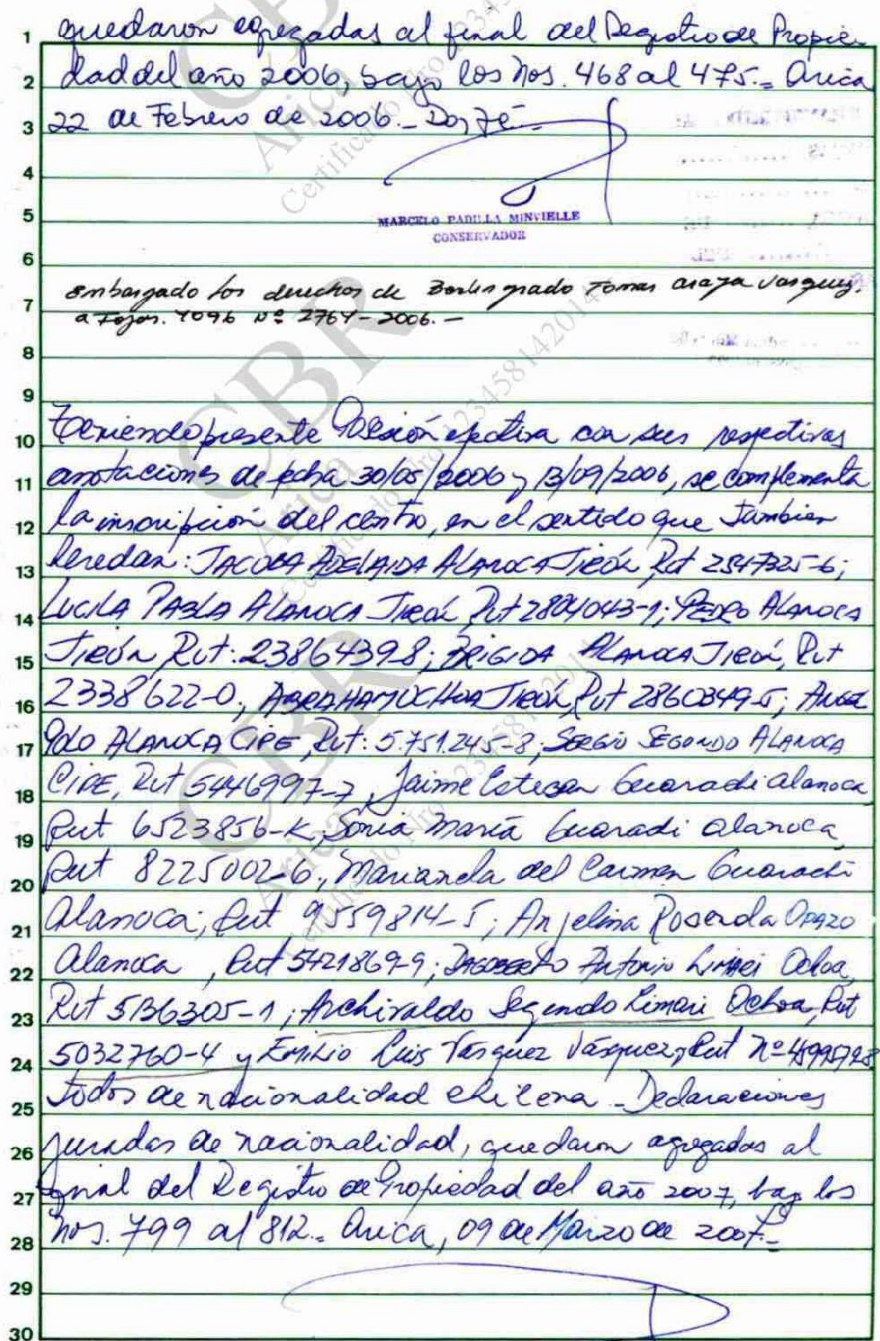 quedaron agregadas al final del Registro de Propie-
1
dad del año 2006, bajo los Nos. 468 al 475.- Arica
2
22 de Febrero de 2006.- Doy fé.-
3
4
MARCELO PADILLA MINVIELLE
5
CONSERVADOR
6
embargado los derechos de Tomas Araya Vasquez.
7
a Fojas. 4096 Nº 2764-2006.-
8
9
Teniendo presente Posesión efectiva con sus respectivas
10
anotaciones de fecha 30/05/2006 y 13/09/2006, se complementa
11
la inscripción del centro, en el sentido que tambien
12
heredan: JACOBA ADELAIDA ALANOCA TICONA Rut 2547325-6;
13
LUCILA PABLA ALANOCA Rut 2804043-1; PEDRO ALANOCA
14
Rut: 2386439-8; BRIGIDA ALANOCA Rut
15
2338622-0, ABRAHAM OCHOA Rut 2860349-5;
16
ALANOCA CIPE, Rut: 5.751.245-8; SERGIO SEGUNDO ALANOCA
17
CIPE, Rut 5446997-7, Jaime Esteban Guarachi Alanoca
18
Rut 6523856-K, Sonia María Guarachi Alanoca
19
Rut 8225002-6, Marianela del Carmen Guarachi
20
Alanoca; Rut 9559814-5; Anjelina Rosenda Opazo
21
Alanoca, Rut 5421869-9; Dagoberto Antonio Limari Ochoa,
22
Rut 5136305-1; Archivaldo Segundo Limari Ochoa, Rut
23
5032760-4 y Emilio Luis Vasquez Vásquez, Rut Nº
24
todos de nacionalidad chilena.- Declaraciones
25
juradas de nacionalidad, quedaron agregadas al
26
final del Registro de Propiedad del año 2007, bajo los
27
Nos. 799 al 812.- Arica, 09 de Marzo de 2007.-
28
29
30
CBR
Arica
Certificado Nro 123458142014